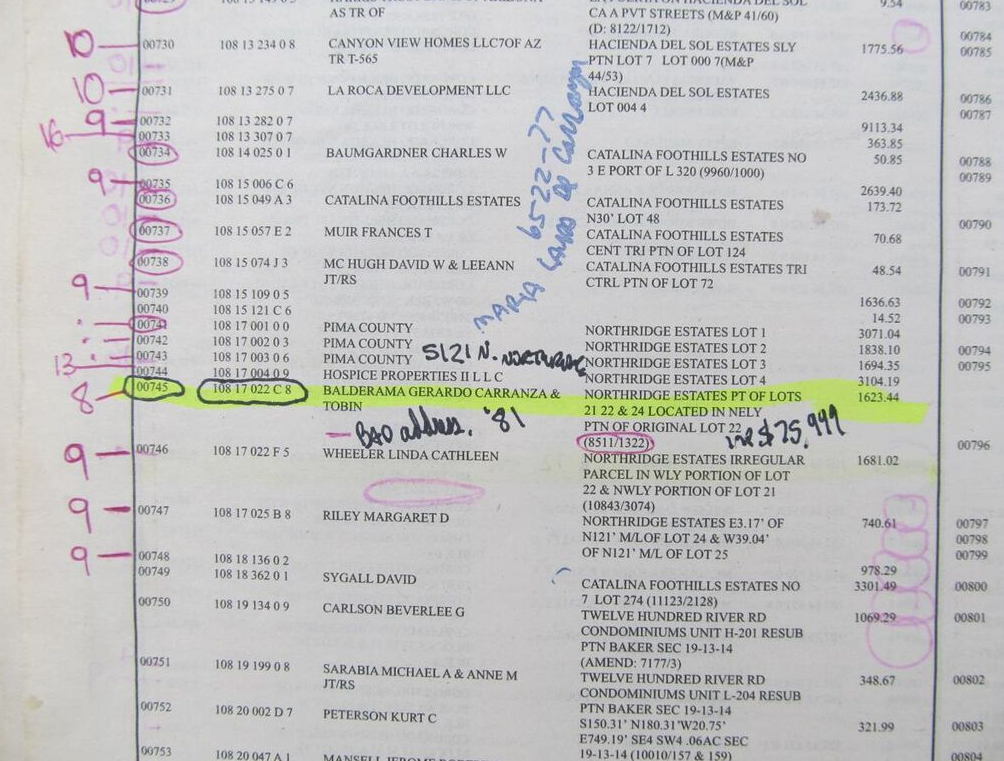 AS TR OF
CA A PVT STREETS (M&P 41/60) 9.54 00783
(D: 8122/1712)
00784
10 00730 108 13 234 0 8 CANYON VIEW HOMES LLC7OF AZ HACIENDA DEL SOL ESTATES SLY 1775.56 00785
TR T-565 PTN LOT 7 LOT 000 7(M&P
44/53)
10 00731 108 13 275 0 7 LA ROCA DEVELOPMENT LLC HACIENDA DEL SOL ESTATES 2436.88 00786
LOT 004 4
00787
9 00732 108 13 282 0 7 9113.34
16 00733 108 13 307 0 7 363.85
00734 108 14 025 0 1 BAUMGARDNER CHARLES W CATALINA FOOTHILLS ESTATES NO 50.85 00788
3 E PORT OF L 320 (9960/1000) 00789
9 00735 108 15 006 C 6 2639.40
00736 108 15 049 A 3 CATALINA FOOTHILLS ESTATES CATALINA FOOTHILLS ESTATES 173.72
N30' LOT 48
00737 108 15 057 E 2 MUIR FRANCES T CATALINA FOOTHILLS ESTATES 70.68 00790
CENT TRI PTN OF LOT 124
00738 108 15 074 J 3 MC HUGH DAVID W & LEEANN CATALINA FOOTHILLS ESTATES TRI 48.54 00791
JT/RS CTRL PTN OF LOT 72
9 00739 108 15 109 0 5 1636.63 00792
00740 108 15 121 C 6 14.52 00793
MARIA 6522-77
00741 108 17 001 0 0 PIMA COUNTY NORTHRIDGE ESTATES LOT 1 3071.04
00742 108 17 002 0 3 PIMA COUNTY NORTHRIDGE ESTATES LOT 2 1838.10 00794
5121 N. NORTHRIDGE
13 00743 108 17 003 0 6 PIMA COUNTY NORTHRIDGE ESTATES LOT 3 1694.35 00795
00744 108 17 004 0 9 HOSPICE PROPERTIES II L L C NORTHRIDGE ESTATES LOT 4 3104.19
8 00745 108 17 022 C 8 BALDERAMA GERARDO CARRANZA & NORTHRIDGE ESTATES PT OF LOTS 1623.44
TOBIN 21 22 & 24 LOCATED IN NELY
PTN OF ORIGINAL LOT 22
BAD address. '81 (8511/1322) $75,999 00796
9 00746 108 17 022 F 5 WHEELER LINDA CATHLEEN NORTHRIDGE ESTATES IRREGULAR 1681.02
PARCEL IN WLY PORTION OF LOT
22 & NWLY PORTION OF LOT 21
(10843/3074)
9 00747 108 17 025 B 8 RILEY MARGARET D NORTHRIDGE ESTATES E3.17' OF 740.61 00797
N121' M/LOF LOT 24 & W39.04' 00798
OF N121' M/L OF LOT 25 00799
9 00748 108 18 136 0 2 978.29
00749 108 18 362 0 1 SYGALL DAVID CATALINA FOOTHILLS ESTATES NO 3301.49 00800
7 LOT 274 (11123/2128)
00750 108 19 134 0 9 CARLSON BEVERLEE G TWELVE HUNDRED RIVER RD 1069.29 00801
CONDOMINIUMS UNIT H-201 RESUB
PTN BAKER SEC 19-13-14
(AMEND: 7177/3)
00751 108 19 199 0 8 SARABIA MICHAEL A & ANNE M TWELVE HUNDRED RIVER RD 348.67 00802
JT/RS CONDOMINIUMS UNIT L-204 RESUB
PTN BAKER SEC 19-13-14
00752 108 20 002 D 7 PETERSON KURT C S150.31' N180.31'W20.75' 321.99 00803
E749.19' SE4 SW4 .06AC SEC
00753 108 20 047 A 1 19-13-14 (10010/157 & 159) 00804